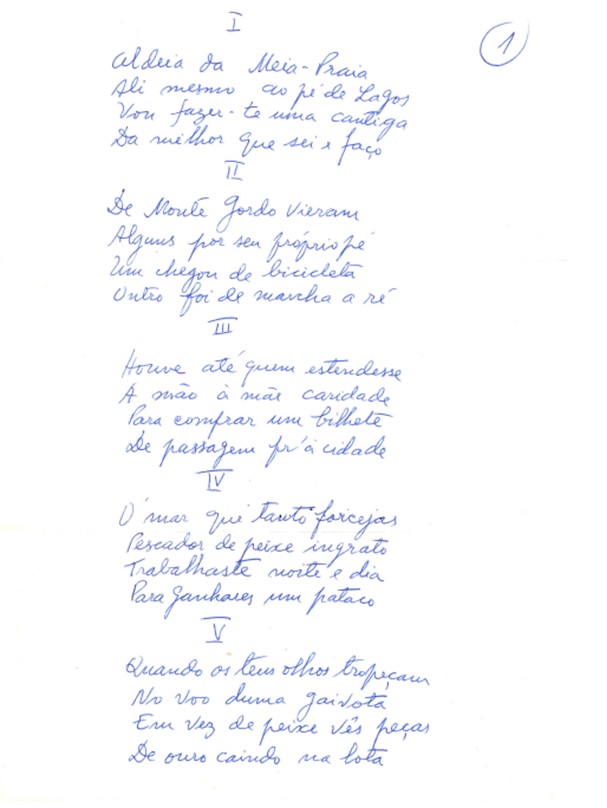 1
I
Aldeia da Meia-Praia
Ali mesmo ao pé de Lagos
Vou fazer-te uma cantiga
Da melhor que sei e faço
II
De Monte Gordo vieram
Alguns por seu próprio pé
Um chegou de bicicleta
Outro foi de marcha a ré
III
Houve até quem estendesse
A mão à mãe caridade
Para comprar um bilhete
De passagem pr'à cidade
IV
Ó mar que tanto forcejas
Pescador de peixe ingrato
Trabalhaste noite e dia
Para Ganhares um pataco
V
Quando os teus olhos tropeçam
No voo duma gaivota
Em vez de peixe vês peças
De ouro caindo na lota